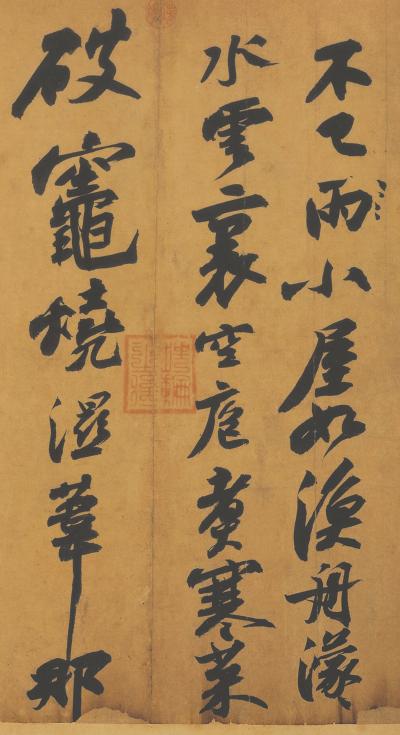 不已雨小屋如漁舟濛〻
水雲裏空庖煑寒菜
破竈燒濕葦那